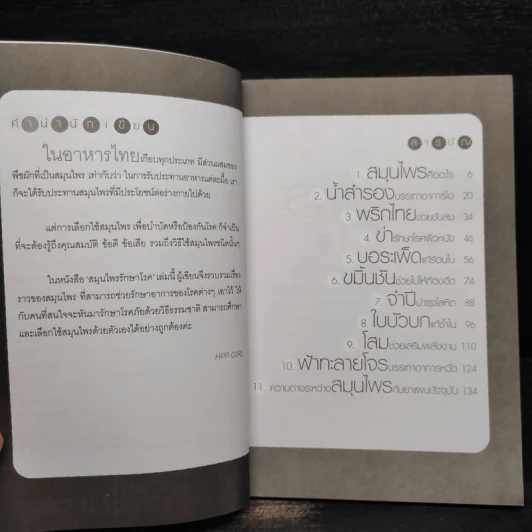 คำนำนักเขียน
ในอาหารไทยเกือบทุกประเภท มีส่วนผสมของ
พืชผักที่เป็นสมุนไพร เท่ากับว่า ในการรับประทานอาหารแต่ละมื้อ เรา
ก็จะได้รับประทานสมุนไพรที่มีประโยชน์ต่อร่างกายไปด้วย
แต่การเลือกใช้สมุนไพร เพื่อบำบัดหรือป้องกันโรค ก็จำเป็น
ที่จะต้องรู้ถึงคุณสมบัติ ข้อดี ข้อเสีย รวมถึงวิธีใช้สมุนไพรชนิดนั้นๆ
ในหนังสือ 'สมุนไพรรักษาโรค' เล่มนี้ ผู้เขียนจึงรวบรวมเรื่อง
ราวของสมุนไพร ที่สามารถช่วยรักษาอาการของโรคต่างๆ เอาไว้ ให้
กับคนที่สนใจจะหันมารักษาโรคภัยด้วยวิธีธรรมชาติ สามารถศึกษา
และเลือกใช้สมุนไพรด้วยตัวเองได้อย่างถูกต้องค่ะ
HPP-GIRL
สารบัญ
1. สมุนไพรคืออะไร 6
2. น้ำสำรองบรรเทาอาการไอ 20
3. พริกไทยช่วยขับลม 34
4. ข่ารักษาโรคผิวหนัง 46
5. บอระเพ็ดแก้ร้อนใน 56
6. ขมิ้นชันช่วยไม่ให้ท้องอืด 74
7. จำปีบำรุงโลหิต 88
8. ใบบัวบกแก้ช้ำใน 96
9. โสมช่วยเสริมพลังงาน 110
10. ฟ้าทะลายโจรบรรเทาอาการหวัด 124
11. ความต่างระหว่างสมุนไพรกับยาแผนปัจจุบัน 134